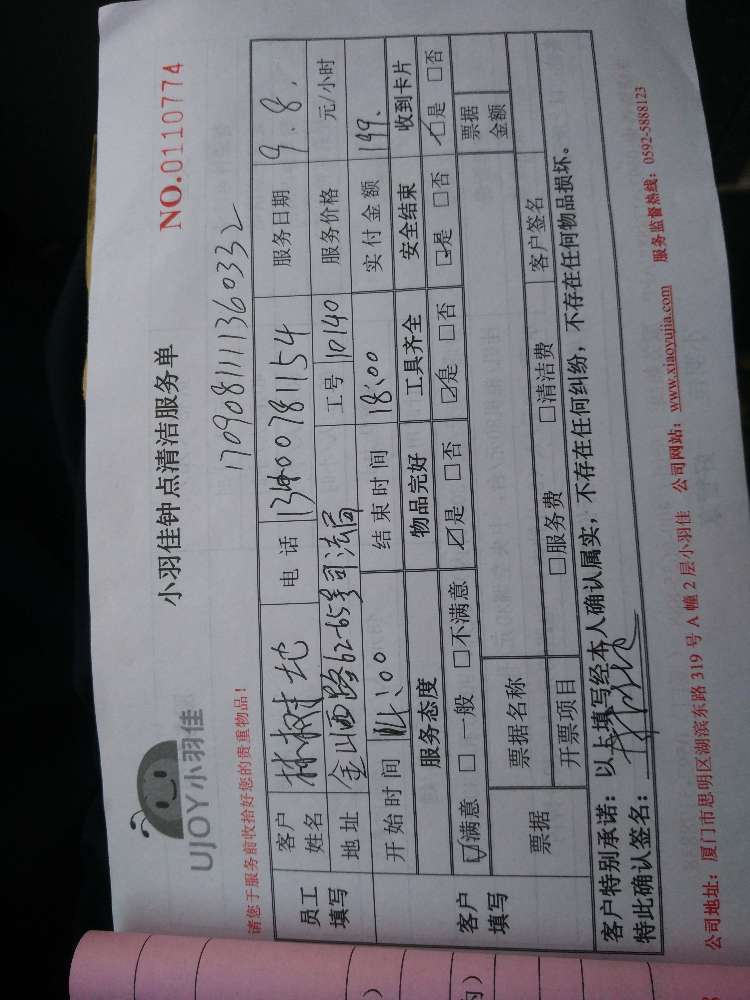 UJOY小羽佳
小羽佳钟点清洁服务单
NO.0110774
170908111360332
请您于服务前收拾好您的贵重物品!
员工填写 客户姓名 林树地 电话 13400781154 服务日期 9.8.
地址 金山西路62-65号司法局 工号 10140 服务价格 元/小时
开始时间 14:00 结束时间 18:00 实付金额 149.
客户填写 服务态度 物品完好 工具齐全 安全结束 收到卡片
☑满意 □一般 □不满意 ☑是 □否 ☑是 □否 ☑是 □否 ☑是 □否
票据 票据名称 票据金额
开票项目 □服务费 □清洁费 客户签名
客户特别承诺:以上填写经本人确认属实,不存在任何纠纷,不存在任何物品损坏。
特此确认签名:
公司地址:厦门市思明区湖滨东路319号A幢2层小羽佳 公司网站:www.xiaoyujia.com 服务监督热线:0592-5888123